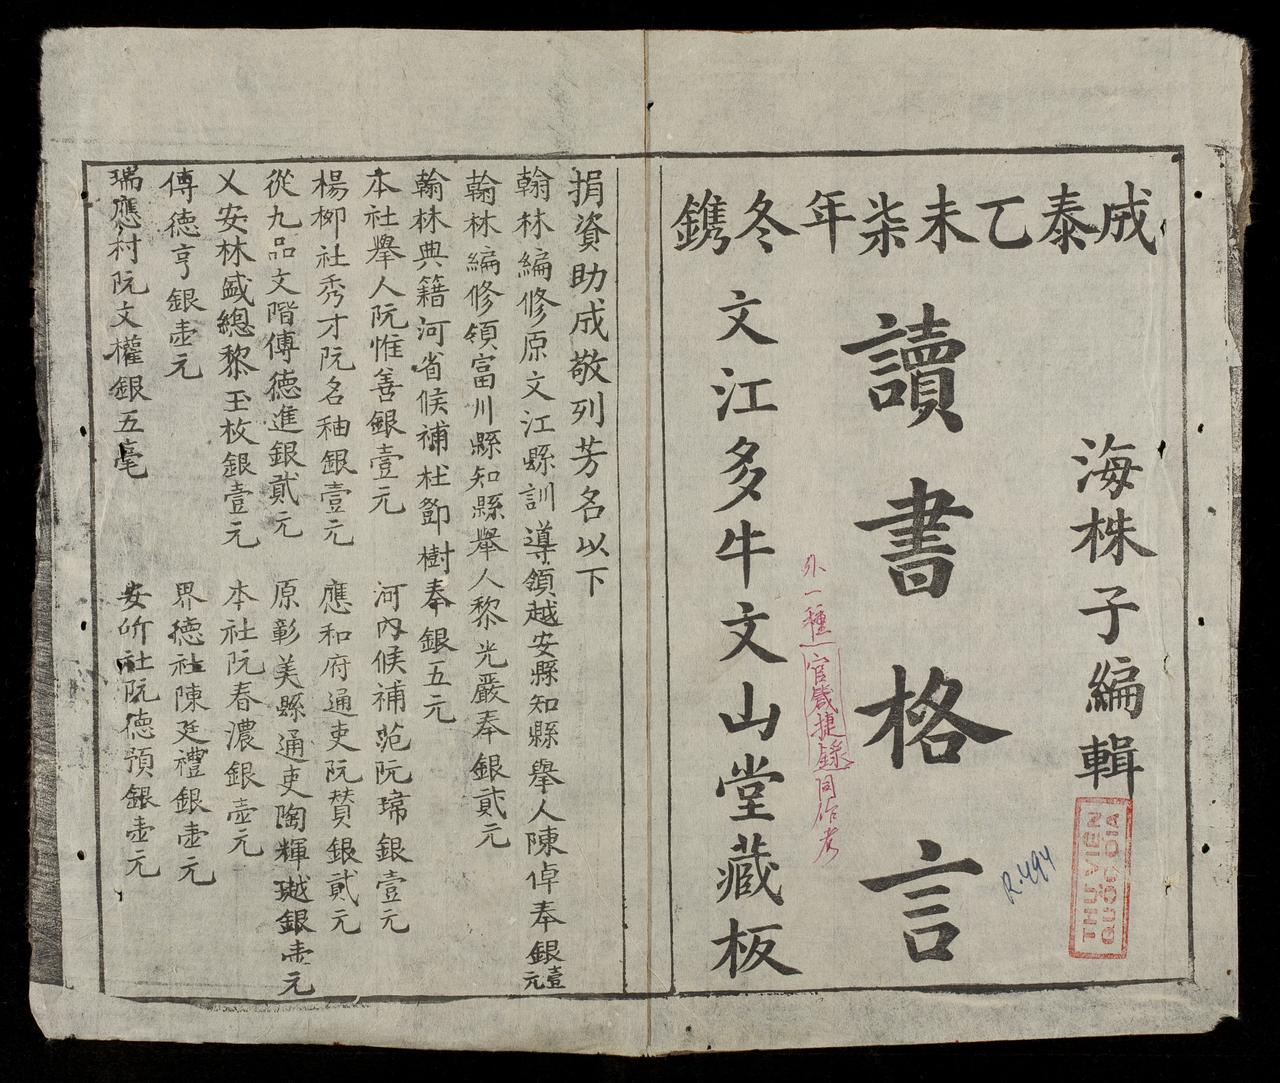 成泰乙未柒年冬鐫
海株子編輯
讀書格言
文江多牛文山堂藏板
外一種官箴捷錄同作者
R.494
THƯ VIỆN
QUỐC GIA
捐資助成敬列芳名以下
翰林編修原文江縣訓導領越安縣知縣舉人陳倬奉銀壹元
翰林編修領富川縣知縣舉人黎光嚴奉銀貳元
翰林典籍河省候補杜節樹奉銀五元
本社舉人阮惟善銀壹元 河內候補范阮瑺銀壹元
楊柳社秀才阮名秞銀壹元 應和府通吏阮贊銀貳元
從九品文階傅德進銀貳元 原彰美縣通吏陶輝樾銀壹元
乂安林盛總黎玉枚銀壹元 本社阮春濃銀壺元
傅德亨銀壺元 界德社陳廷禮銀壺元
瑞應村阮文權銀五毫 安所社阮德預銀壺元